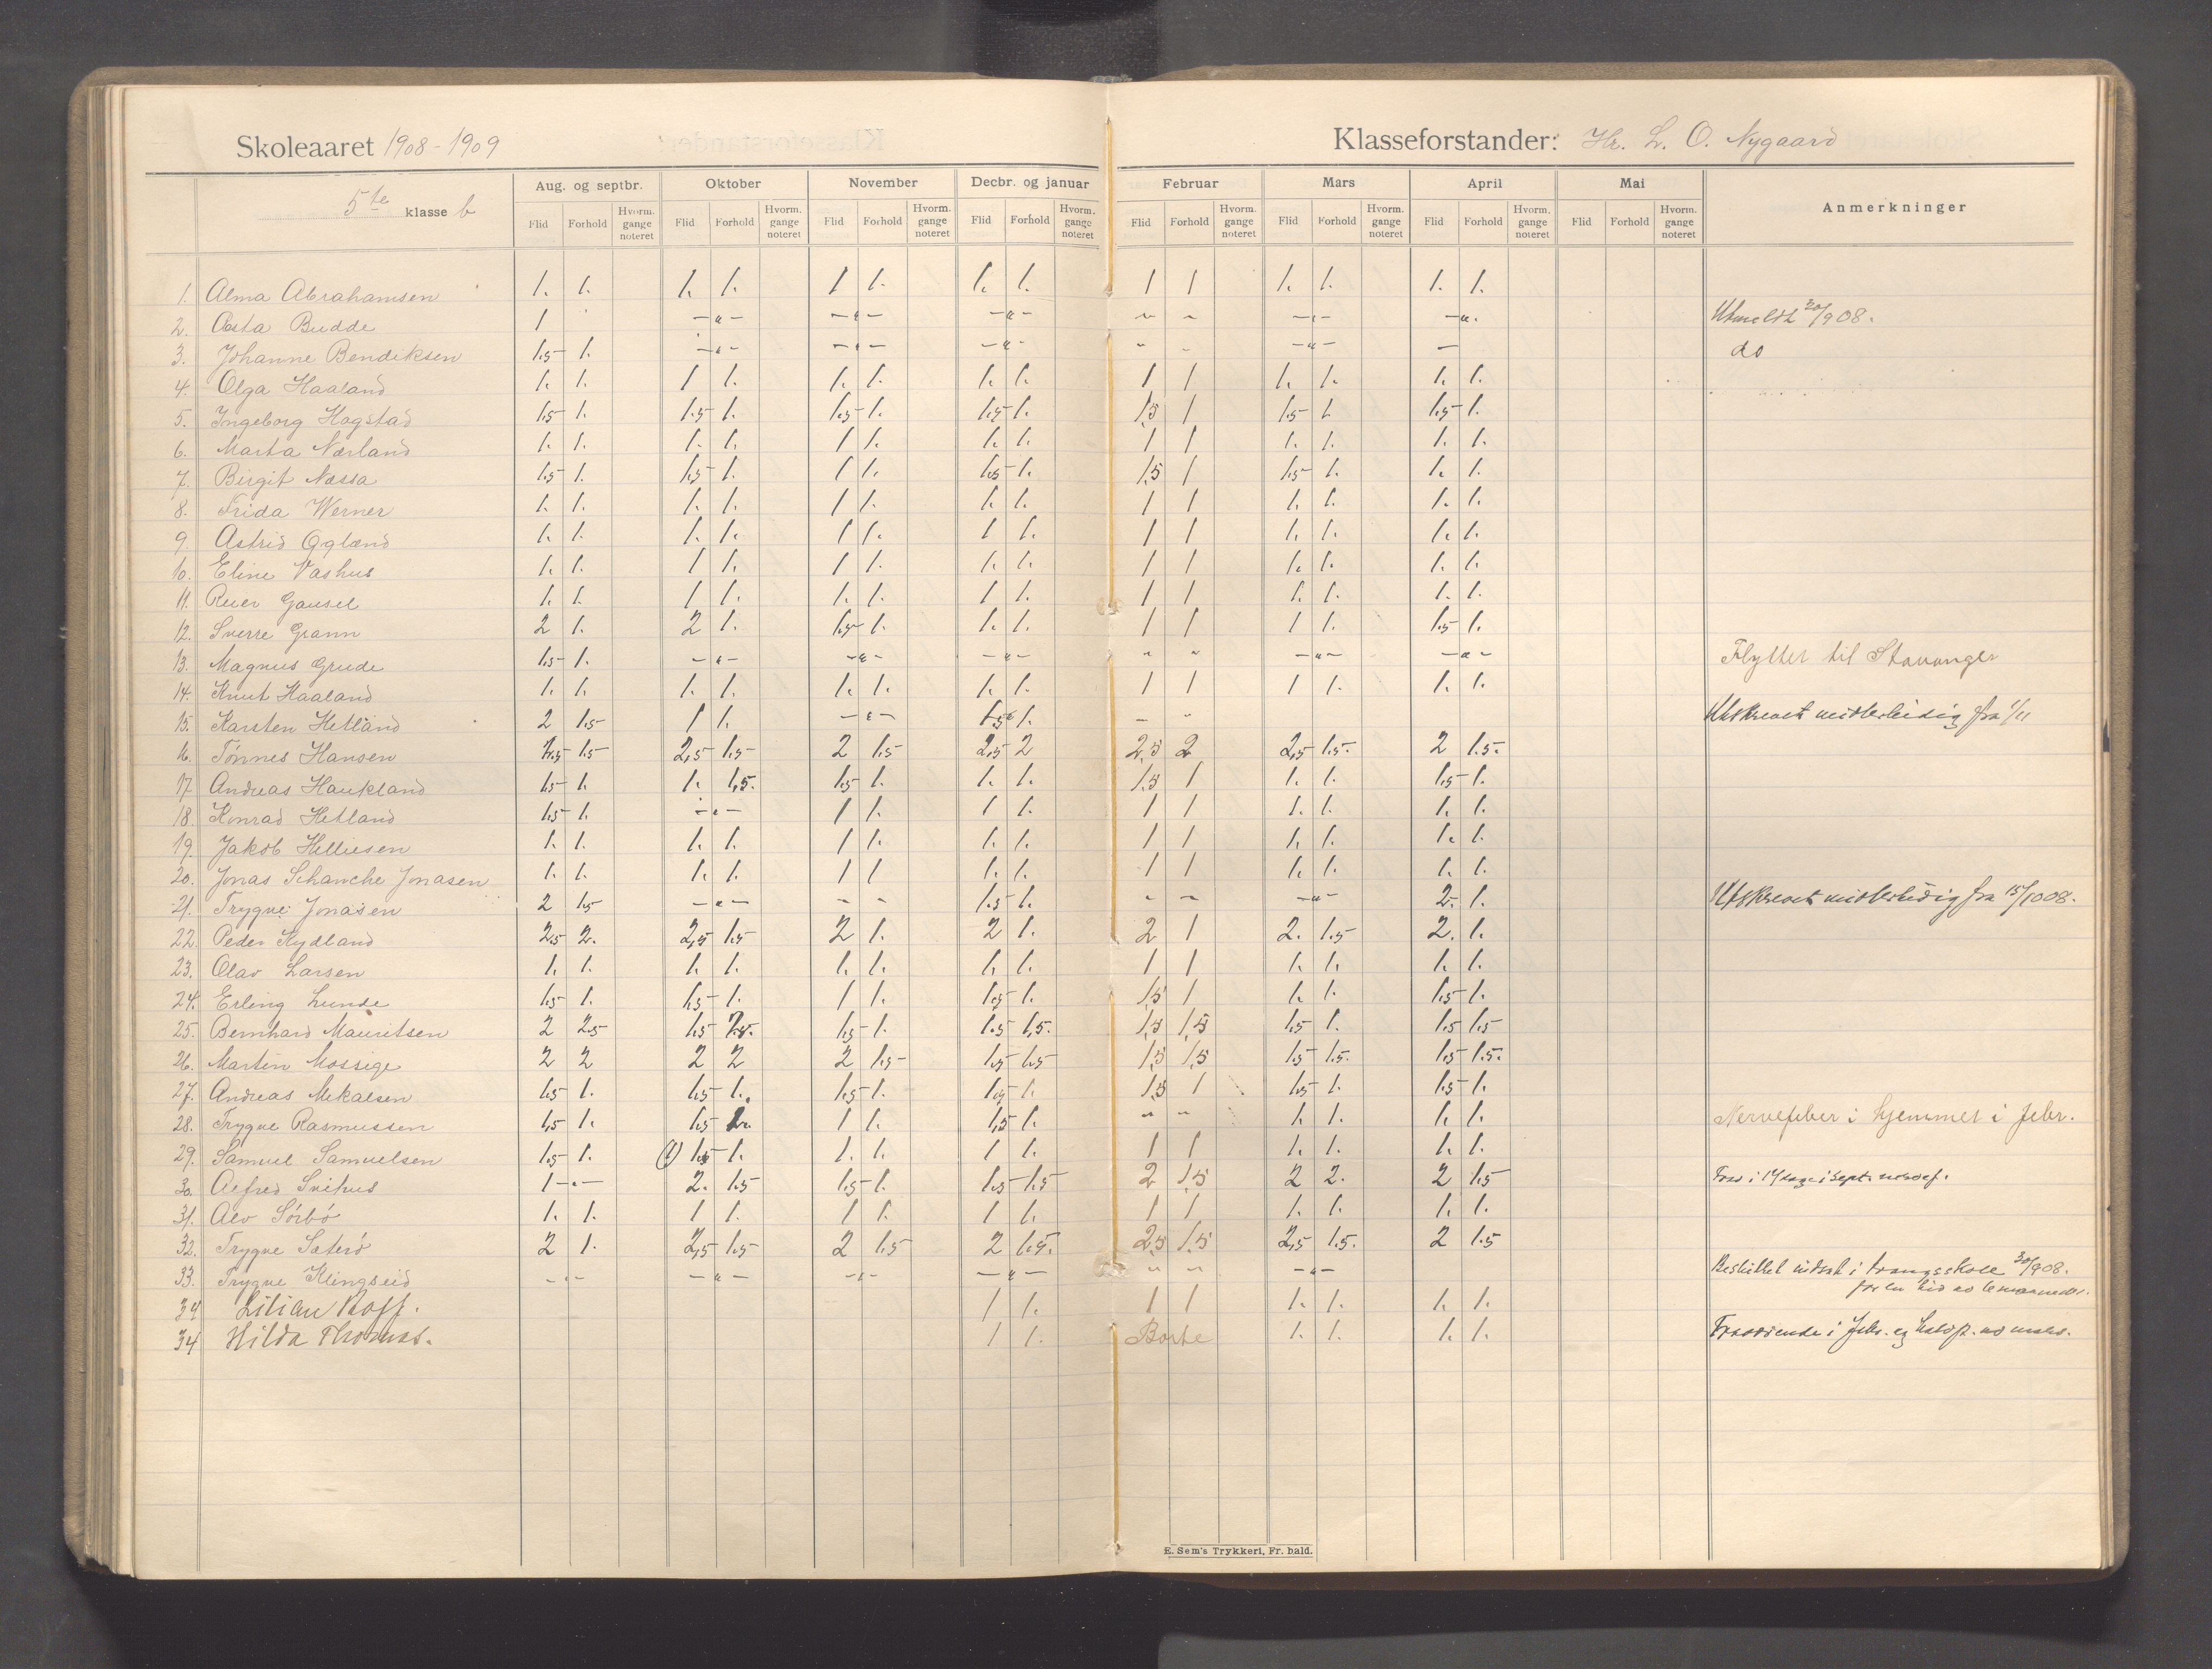 Skoleaaret 1908-1909 Klasseforstander: Hr. L. O. Nygaard
5te klasse b Aug. og septbr. Oktober November Decbr. og januar Februar Mars April Mai Anmerkninger
Flid Forhold Hvorm. gange noteret Flid Forhold Hvorm. gange noteret Flid Forhold Hvorm. gange noteret Flid Forhold Hvorm. gange noteret Flid Forhold Hvorm. gange noteret Flid Forhold Hvorm. gange noteret Flid Forhold Hvorm. gange noteret Flid Forhold Hvorm. gange noteret
1. Alma Abrahamsen 1. 1. 1. 1. 1 1. 1. 1. 1 1 1. 1. 1. 1.
2. Aasta Budde 1 -"- -"- -"- " " -"- -"- Utmeldt 30/9 08.
3. Johanne Bendiksen 1.5 1. -"- -"- -"- " " -"- - do
4. Olga Haaland 1. 1. 1 1. 1. 1. 1. 1. 1 1 1. 1. 1. 1.
5. Ingeborg Hogstad 1.5 1. 1.5 1. 1.5 1. 1.5 1. 1,5 1 1.5 1. 1.5 1.
6. Marta Nærland 1. 1. 1. 1. 1 1. 1. 1. 1 1 1. 1. 1. 1.
7. Birgit Næssa 1.5 1. 1.5 1. 1 1. 1.5 1. 1,5 1 1.5 1. 1. 1.
8. Frida Werner 1. 1. 1. 1. 1 1. 1. 1. 1 1 1. 1. 1. 1.
9. Astrid Ogland 1. 1. 1. 1. 1 1. 1 1. 1 1 1. 1. 1. 1.
10. Eline Vashus 1. 1. 1 1. 1 1. 1. 1. 1 1 1. 1. 1. 1.
11. Gausel 1. 1. 1 1. 1. 1. 1 1. 1 1 1. 1. 1. 1.
12. Sverre Grann 2 1. 2 1. 1.5 1. 1. 1. 1 1 1 1. 1.5 1.
13. Magnus Grude 1.5 1. -"- -"- -"- " " -"- -"- Flyttet til Stavanger
14. Knut Haaland 1. 1. 1. 1. 1. 1. 1. 1. 1 1 1 1. 1. 1.
15. Karsten Hetland 2 1.5 1 1. -"- 1.5 1. - " Utskrevet midlertidig fra 1/11
16. Tönnes Hansen 1.5 2,5 1.5 2 1.5 2,5 2 2,5 2 2,5 1.5. 2 1.5.
17. Andreas Haukland 1.5 1. 1. 1,5. 1.5 1. 1. 1. 1,5 1 1. 1. 1.5 1.
18. Konrad Hetland 1.5 1. -"- 1 1. 1 1. 1 1 1. 1. 1. 1.
19. Jakob Helliesen 1. 1. 1. 1. 1 1. 1. 1. 1 1 1. 1. 1. 1.
20. Jonas Schanche Jonasen 1. 1. 1. 1. 1 1 1. 1. 1 1 1. 1. 1. 1.
21. Trygve Jonasen 2 1.5 -"- - - 1.5 1. - - -"- 2. 1. Utskrevet midlertidig fra 15/10 08.
22. Peder Kydland 2.5 2. 2,5 1.5 2 1. 2 1. 2 1 2. 1.5 2. 1.
23. Olav Larsen 1. 1. 1. 1. 1. 1. 1. 1. 1 1 1. 1. 1. 1.
24. Erling Lunde 1.5 1. 1.5 1. 1 1. 1.5 1. 1,5 1 1. 1. 1.5 1.
25. Bernhard Mauritsen 2 2.5 1.5 1.5 1. 1.5 1,5. 1,5 1,5 1.5 1. 1.5 1.5
26. Martin Mossige 2 2 2 2 2 1.5 1.5 1.5 1,5 1,5 1.5 1.5. 1.5 1.5.
27. Andreas Mikalsen 1.5 1. 1.5 1. 1.5 1. 1.5 1. 1,5 1 1.5 1. 1.5 1.
28. Trygve Rasmussen 1.5 1. 1.5 1 1. 1,5 1. " " 1. 1. 1. 1. Nervefeber i hjemmet i febr.
29. Samuel Samuelsen 1.5 1. (1) 1.5 1. 1. 1. 1 1. 1 1 1. 1. 1. 1.
30. Alfred Svihus 1 -"- 2. 1.5 1.5 1. 1.5 1.5 2 1,5 2 2. 2 1.5 i 14 dage i sept.
31. Alv Sörbö 1. 1. 1 1. 1 1. 1 1. 1 1 1. 1. 1. 1.
32. Trygve Säterö 2 1. 2,5 1.5 2 1.5 2 1.5. 2,5 1,5 2,5 1.5. 2 1.5
33. Trygve Klingseid -"- -"- -"- -"- " " -"- Besluttet indsat i tvangsskole 30/9 08.
for en tid av 6 maaneder.
34 Lilian Roff. 1 1. 1 1 1. 1. 1. 1.
34 Hilda Thomas. 1 1. Borte 1. 1. 1. 1. Fraværende i febr. og av mars.
E. Sem's Trykkeri, Fr. hald.